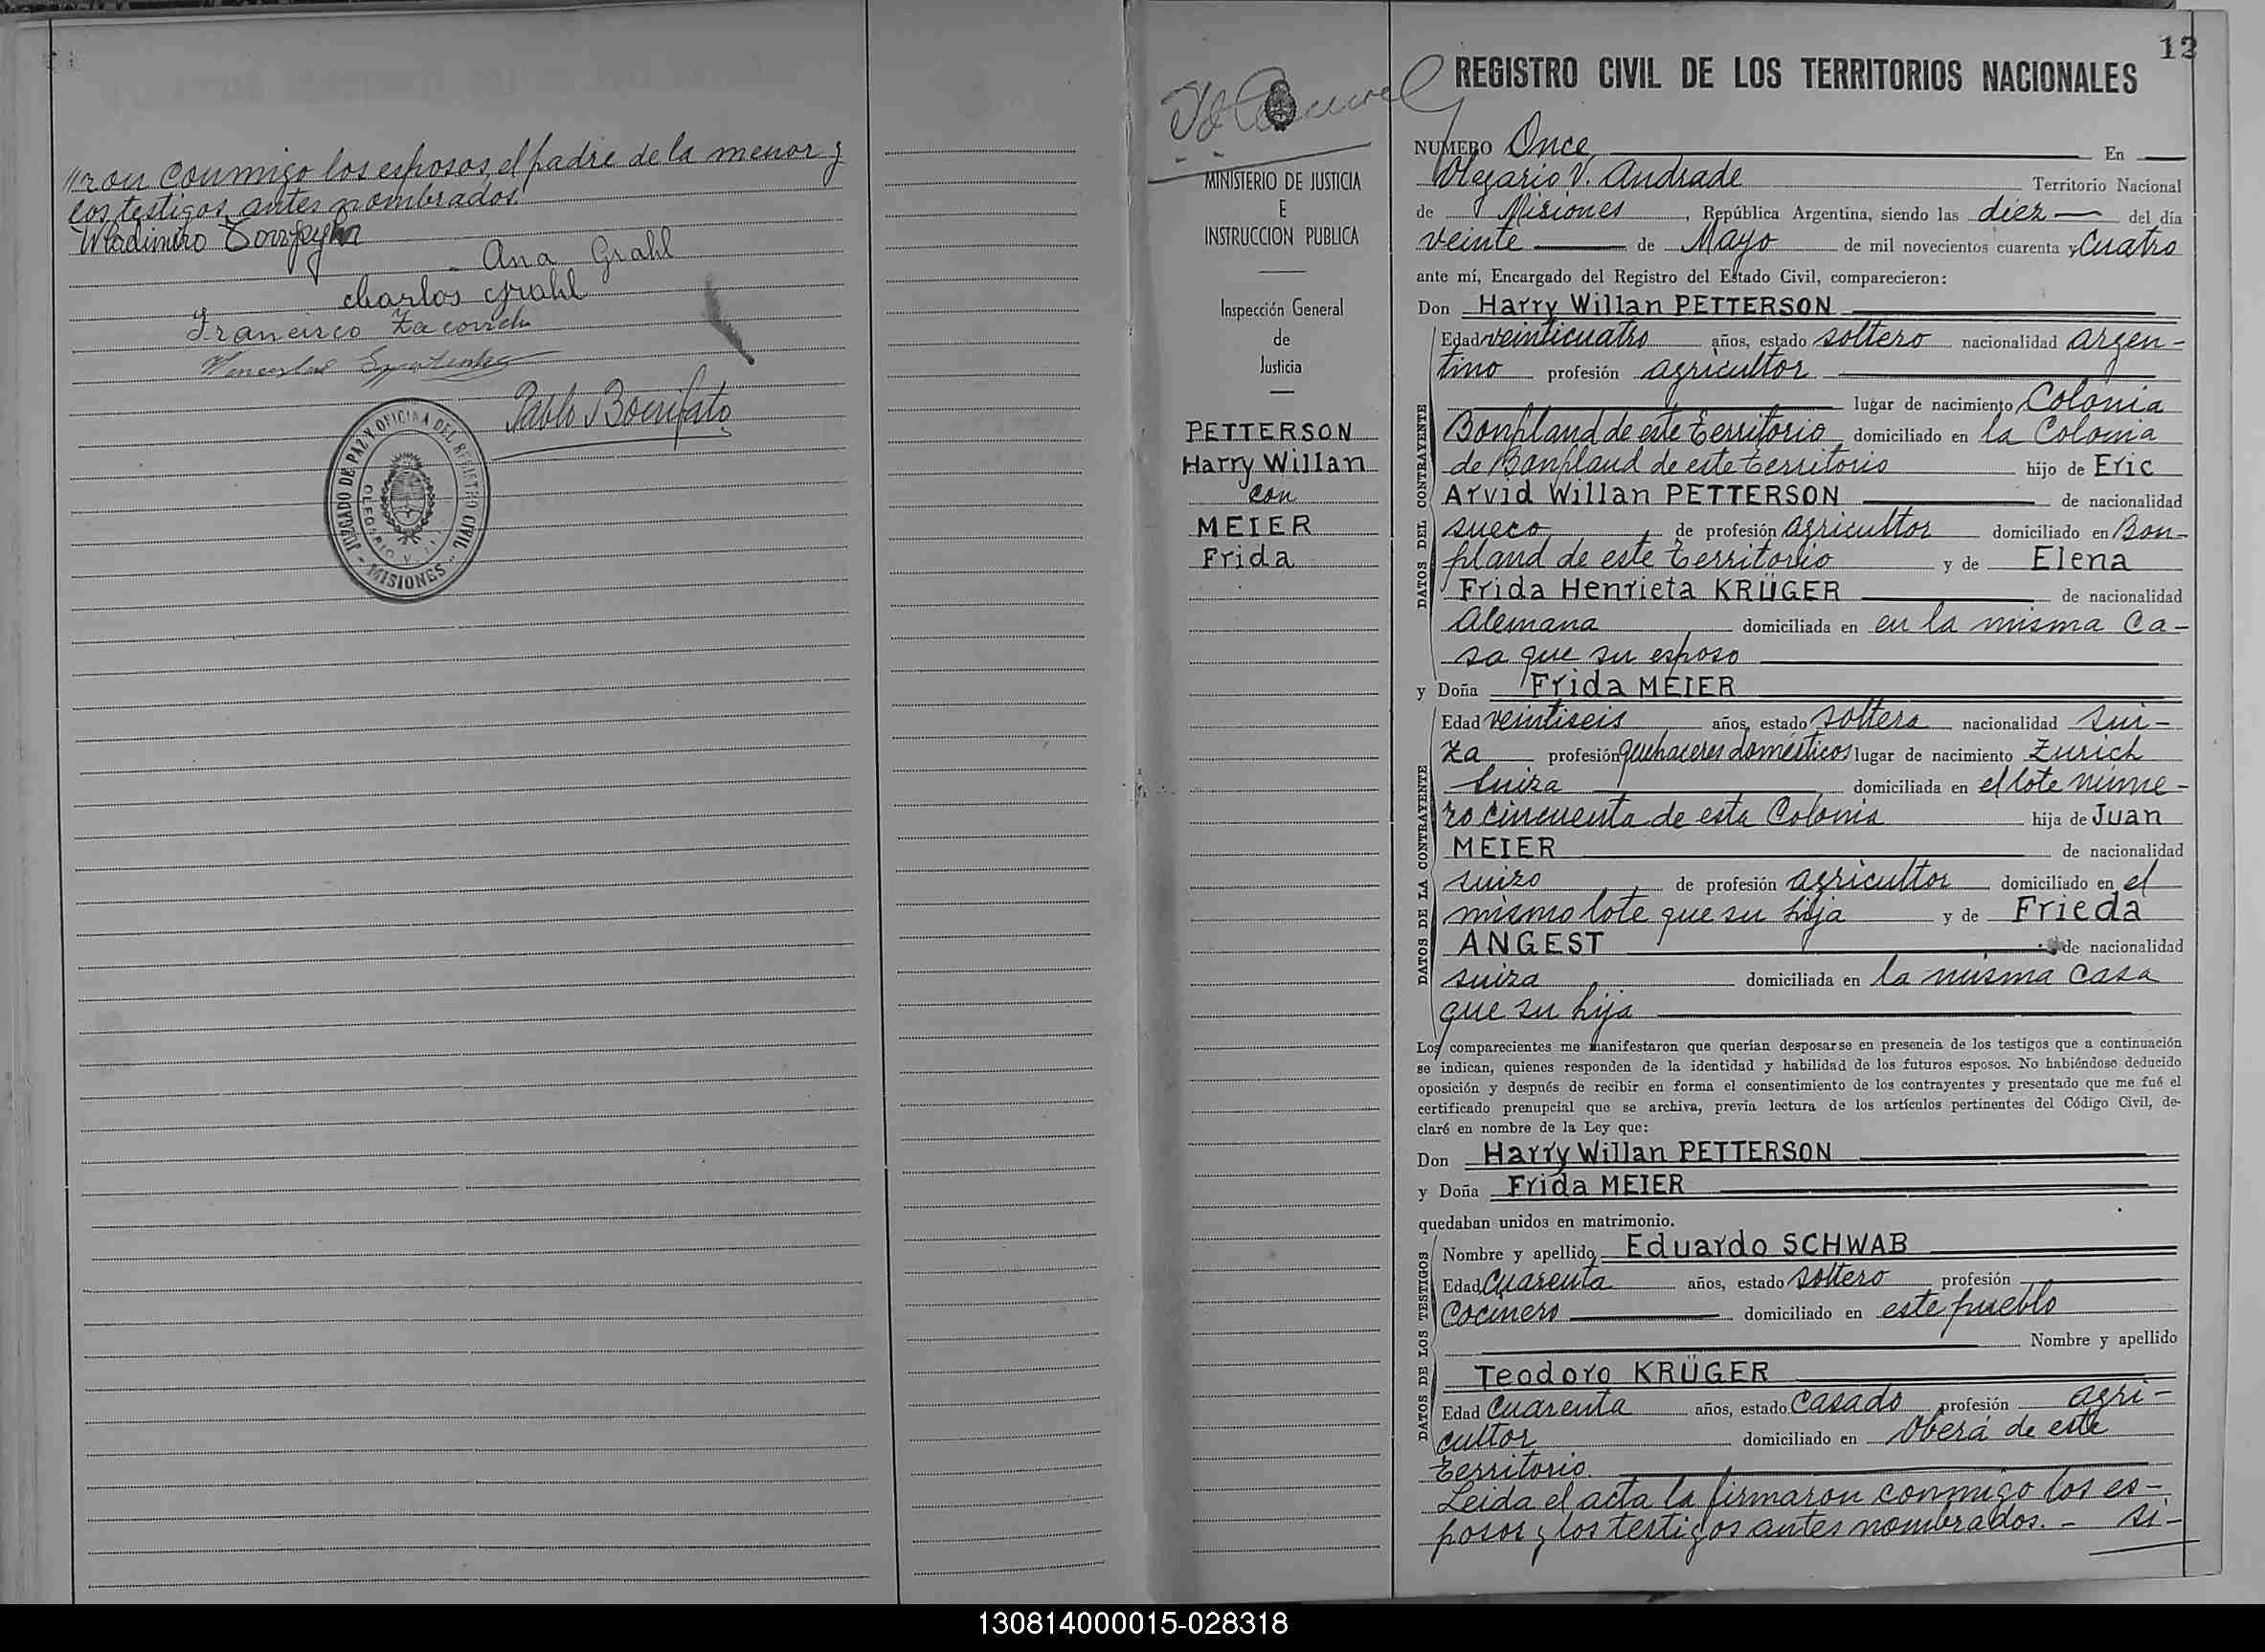 "ron conmigo los esposos, el padre de la menor y
los testigos antes nombrados.
Wladimiro
Ana Grahl
Charlos Grahl
Francisco
Pablo Bonifato
JUZGADO DE PAZ Y OFICINA DEL REGISTRO CIVIL
OLEGARIO V.
MISIONES
MINISTERIO DE JUSTICIA
E
INSTRUCCION PUBLICA
Inspección General
de
Justicia
PETTERSON
Harry Willan
con
MEIER
Frida
12
REGISTRO CIVIL DE LOS TERRITORIOS NACIONALES
NUMERO Once En
Olegario V. Andrade Territorio Nacional
de Misiones, República Argentina, siendo las diez del día
veinte de Mayo de mil novecientos cuarenta y Cuatro
ante mí, Encargado del Registro del Estado Civil, comparecieron:
Don Harry Willan PETTERSON
DATOS DEL CONTRAYENTE
Edad veinticuatro años, estado soltero nacionalidad argen-
tino profesión agricultor
lugar de nacimiento Colonia
Bonpland de este territorio domiciliado en la Colonia
de Bonpland de este territorio hijo de Eric
Arvid Willan PETTERSON de nacionalidad
sueco de profesión agricultor domiciliado en Bon-
pland de este territorio y de Elena
Frida Henrieta KRÜGER de nacionalidad
Alemana domiciliada en en la misma ca-
sa que su esposo
y Doña Frida MEIER
DATOS DE LA CONTRAYENTE
Edad veintiseis años, estado soltera nacionalidad sui-
za profesión quehaceres domésticos lugar de nacimiento Zurich
Suiza domiciliada en el lote núme-
ro cincuenta de esta Colonia hija de Juan
MEIER de nacionalidad
suizo de profesión agricultor domiciliado en el
mismo lote que su hija y de Frieda
ANGEST de nacionalidad
suiza domiciliada en la misma casa
que su hija
Los comparecientes me manifestaron que querían desposarse en presencia de los testigos que a continuación
se indican, quienes responden de la identidad y habilidad de los futuros esposos. No habiéndose deducido
oposición y después de recibir en forma el consentimiento de los contrayentes y presentado que me fué el
certificado prenupcial que se archiva, previa lectura de los artículos pertinentes del Código Civil, de-
claré en nombre de la Ley que:
Don Harry Willan PETTERSON
y Doña Frida MEIER
quedaban unidos en matrimonio.
DATOS DE LOS TESTIGOS
Nombre y apellido Eduardo SCHWAB
Edad Cuarenta años, estado soltero profesión
Cocinero domiciliado en este pueblo
Nombre y apellido
Teodoro KRÜGER
Edad Cuarenta años, estado Casado profesión agri-
cultor domiciliado en Oberá de este
territorio.
Leida el acta la firmaron conmigo los es-
posos y los testigos antes nombrados. - si-
130814000015-028318